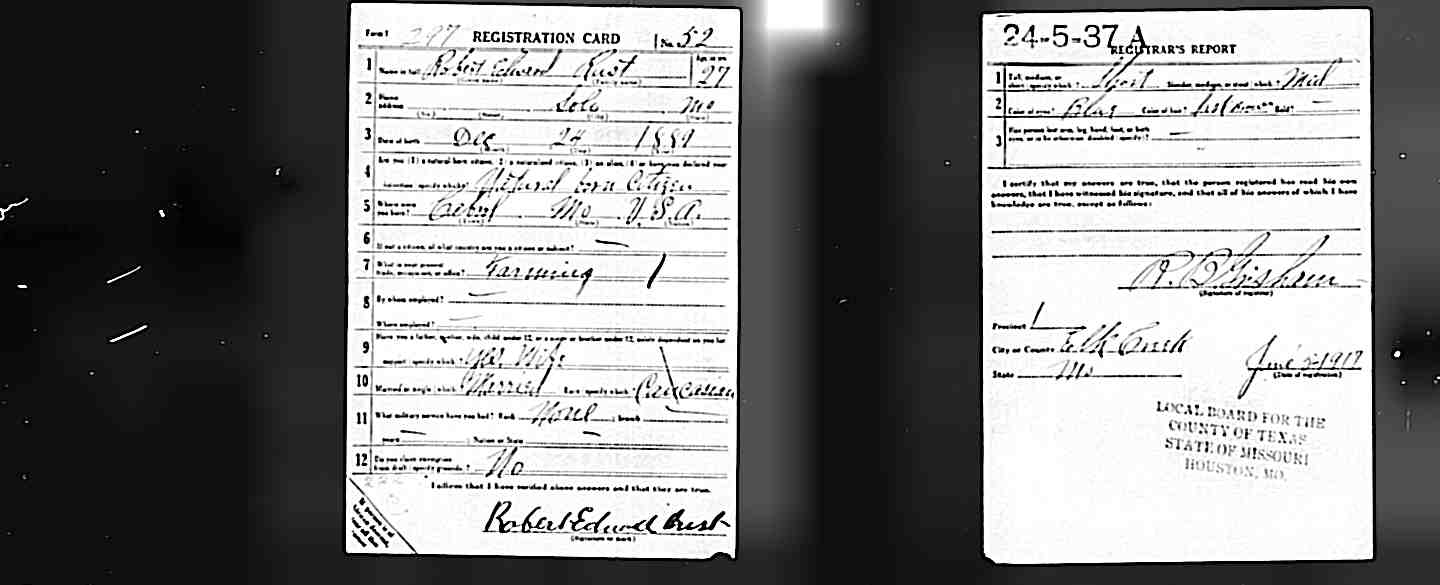 Form 1 297 REGISTRATION CARD No. 52
1 Name in full Robert Edward Rust Age, in yrs. 27
(Given name) (Family name)
2 Home address Solo Mo
(No.) (Street) (City) (State)
3 Date of birth Dec 24 1889
(Month) (Day) (Year)
4 Are you (1) a natural born citizen, (2) a naturalized citizen, (3) an alien, (4) or have you declared your
intention (specify which)? Natural born Citizen
5 Where were you born? Mo U.S.A.
(Town) (State) (Nation)
6 If not a citizen, of what country are you a citizen or subject? —
7 What is your present trade, occupation, or office? Farming 1
8 By whom employed? —
Where employed? —
9 Have you a father, mother, wife, child under 12, or a sister or brother under 12, solely dependent on you for
support (specify which)? Yes. Wife
10 Married or single (which)? Married Race (specify which)? Caucasian
11 What military service have you had? Rank None ; branch
years — ; Nation or State —
12 Do you claim exemption from draft (specify grounds)? No
I affirm that I have verified above answers and that they are true.
Robert Edward Rust
(Signature or mark)
24-5-37 A
REGISTRAR'S REPORT
1 Tall, medium, or short (specify which)? Short Slender, medium, or stout (which)? Med
2 Color of eyes? Blue Color of hair? Bald? —
3 Has person lost arm, leg, hand, foot, or both eyes, or is he otherwise disabled (specify)? —
I certify that my answers are true, that the person registered has read his own
answers, that I have witnessed his signature, and that all of his answers of which I have
knowledge are true, except as follows:
R. B. Grisham
(Signature of registrar)
Precinct 1
City or County Elk Creek
State Mo
June 5-1917
(Date of registration)
LOCAL BOARD FOR THE
COUNTY OF TEXAS
STATE OF MISSOURI
HOUSTON, MO.